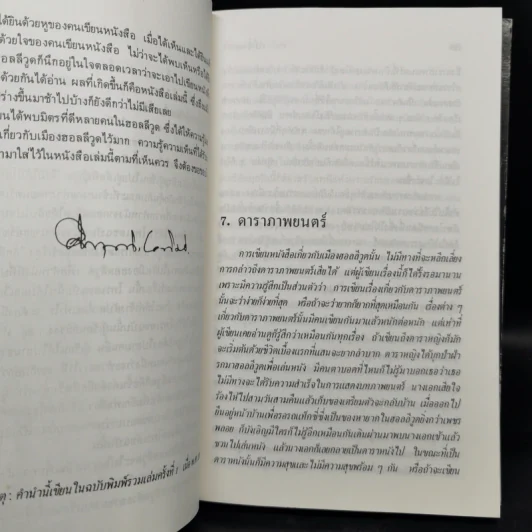 ได้ยินด้วยหูของคนเขียนหนังสือ เมื่อได้เห็นและได้ยิน
ด้วยใจของคนเขียนหนังสือ ไม่ว่าจะได้พบเห็นหรือ
ฮอลลีวูดก็นึกอยู่ในใจตลอดเวลาว่าจะเอาไปเขียน
ด้วยกันได้อ่าน ผลที่เกิดขึ้นก็คือหนังสือเล่มนี้ ซึ่งถึง
ร่างขึ้นมาช้าไปบ้างก็ยังดีกว่าไม่มีเสียเลย
ได้พบมิตรที่ดีหลายคนในฮอลลีวูด ซึ่งได้ให้ความรู้
เกี่ยวกับเมืองฮอลลีวูดไว้มาก ความรู้ความเห็นที่ได้
มาใส่ไว้ในหนังสือเล่มนี้ตามที่เห็นควร จึงต้องขอ
: คำนำนี้เขียนในฉบับพิมพ์รวมเล่มครั้งที่ 1 เมื่อ
7. ดาราภาพยนตร์
การเขียนหนังสือเกี่ยวกับเมืองฮอลลีวูดนั้น ไม่มีทางที่จะหลีกเลี่ยง
การกล่าวถึงดาราภาพยนตร์เสียได้ แต่ผู้เขียนเรื่องนี้ก็ได้รั้งรอมานาน
เพราะมีความรู้สึกเป็นส่วนตัวว่า การเขียนเรื่องเกี่ยวกับดาราภาพยนตร์
นั้นจะว่าง่ายก็ง่ายที่สุด หรือถ้าจะว่ายากก็ยากที่สุดเหมือนกัน เรื่องต่าง ๆ
เกี่ยวกับดาราภาพยนตร์นั้นมีคนเขียนกันมาแล้วหนักต่อหนัก แต่เท่าที่
ผู้เขียนเคยอ่านดูก็รู้สึกว่าเหมือนกันทุกเรื่อง ถ้าเขียนถึงดาราหญิงก็มัก
จะเริ่มต้นด้วยชีวิตเบื้องแรกที่แสนจะยากลำบาก ดาราหญิงได้บุกป่าฝ่า
รกมาฮอลลีวูดเพื่อเล่นหนัง มีคนตาบอดที่ไหนก็ไม่รู้มาบอกเธอว่าเธอ
ไม่มีทางจะได้รับความสำเร็จในการแสดงบทภาพยนตร์ นางเอกเสียใจ
ร้องไห้ไปสามวันสามคืนแล้วเก็บของเตรียมตัวจะกลับบ้าน เมื่อออกไป
ยืนอยู่หน้าบ้านเพื่อรอรถแท็กซี่ซึ่งเป็นของหายากในฮอลลีวูดยิ่งกว่าเพชร
พลอย ก็บังเอิญมีใครก็ไม่รู้อีกเหมือนกันเดินผ่านมาพบนางเอกเข้าแล้ว
ชวนไปเล่นหนัง แล้วนางเอกก็เลยกลายเป็นดาราหนังไป ในขณะที่เป็น
ดาราหนังนั้นก็มีความสุขและไม่มีความสุขพร้อม ๆ กัน หรือถ้าจะเขียน